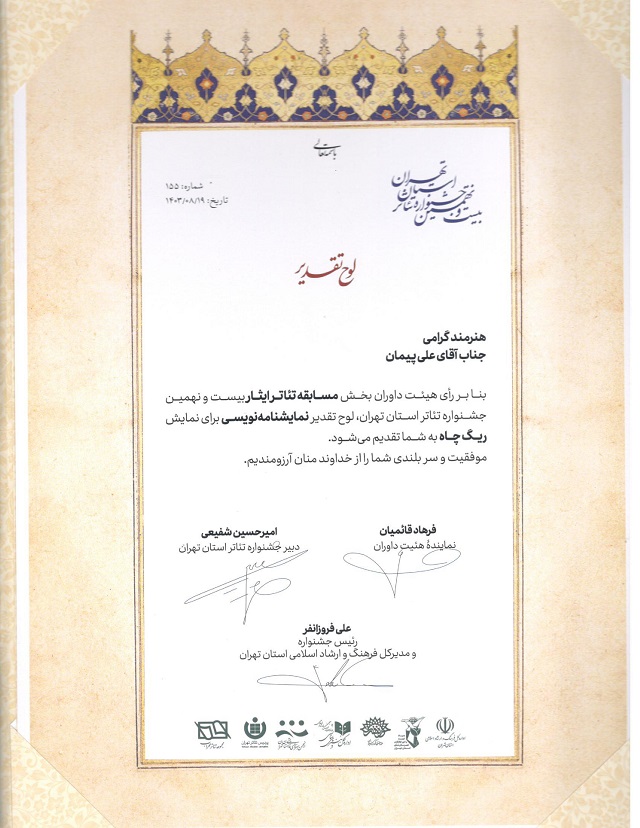 باسمه‌تعالی
بیست و نهمین
جشنواره تئاتر
استان
تهران
شماره: ۱۵۵
تاریخ: ۱۴۰۳/۰۸/۱۹
لوح تقدیر
هنرمند گرامی
جناب آقای علی پیمان
بنا بر رأی هیئت داوران بخش مسابقه تئاتر ایثار بیست و نهمین
جشنواره تئاتر استان تهران، لوح تقدیر نمایشنامه‌نویسی برای نمایش
ریگ چاه به شما تقدیم می‌شود.
موفقیت و سر بلندی شما را از خداوند منان آرزومندیم.
فرهاد قائمیان
نمایندهٔ هئیت داوران
امیرحسین شفیعی
دبیر جشنواره تئاتر استان تهران
علی فروزانفر
رئیس جشنواره
و مدیرکل فرهنگ و ارشاد اسلامی استان تهران